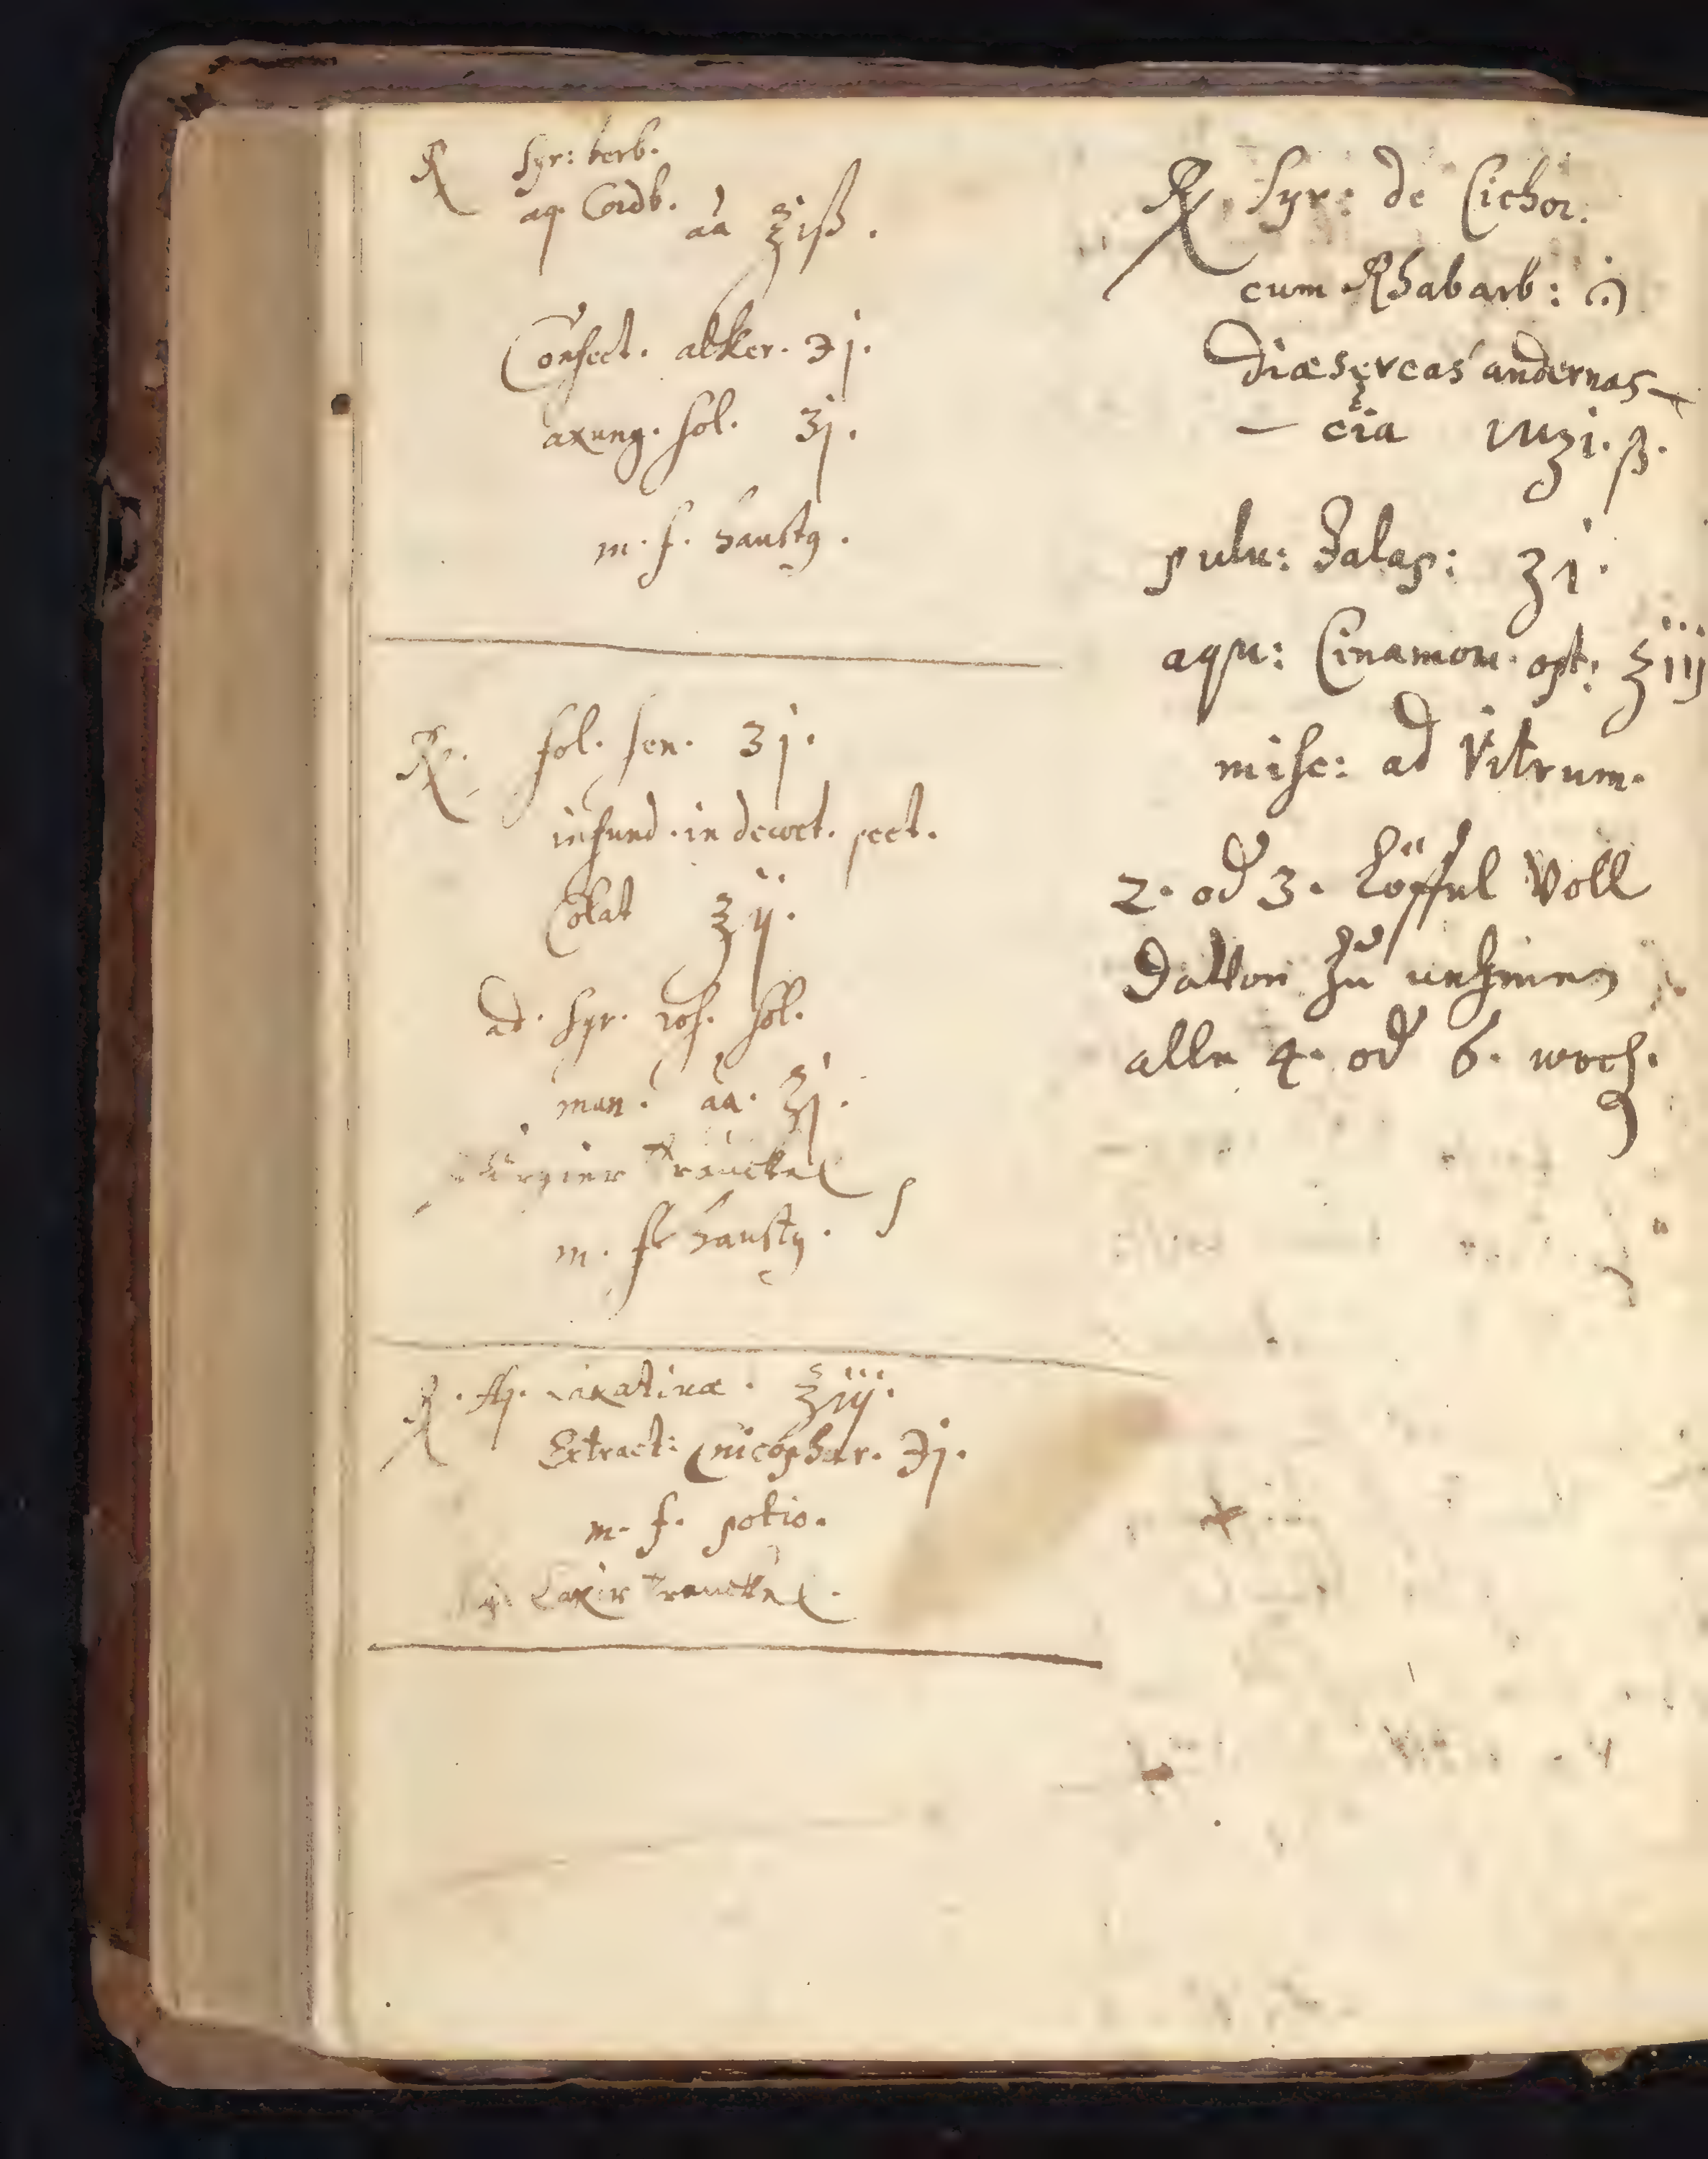 ℞ Syr: berb.
aq. Cordb. aa ℥iß.
Confect. alker. ℈j.
axung. sol. ʒj.
m. f. haustꝰ.
℞. fol. sen. ʒj.
infund. in decoct. pect.
Colat ℥ij.
ad. Syr. ros. sol.
man. aa. ℥j.
Tränckel
m. f. haustꝰ.
℞. Laxativæ. ℥iij.
Extract: Cnicophar. ℈j.
m. f. potio.
Laxir Tranckel.
℞ Syr: de Cichor.
cum Rhabarb:
Diæsereas andernas-
- cia ʒi.ß.
pulu: Jalap: ʒi.
aqu: Cinamom. opt: ℥iij
misc: ad Vitrum.
2. od 3. Löffel Voll
Dauon Zu nehmen
alle 4. od 6. woch.